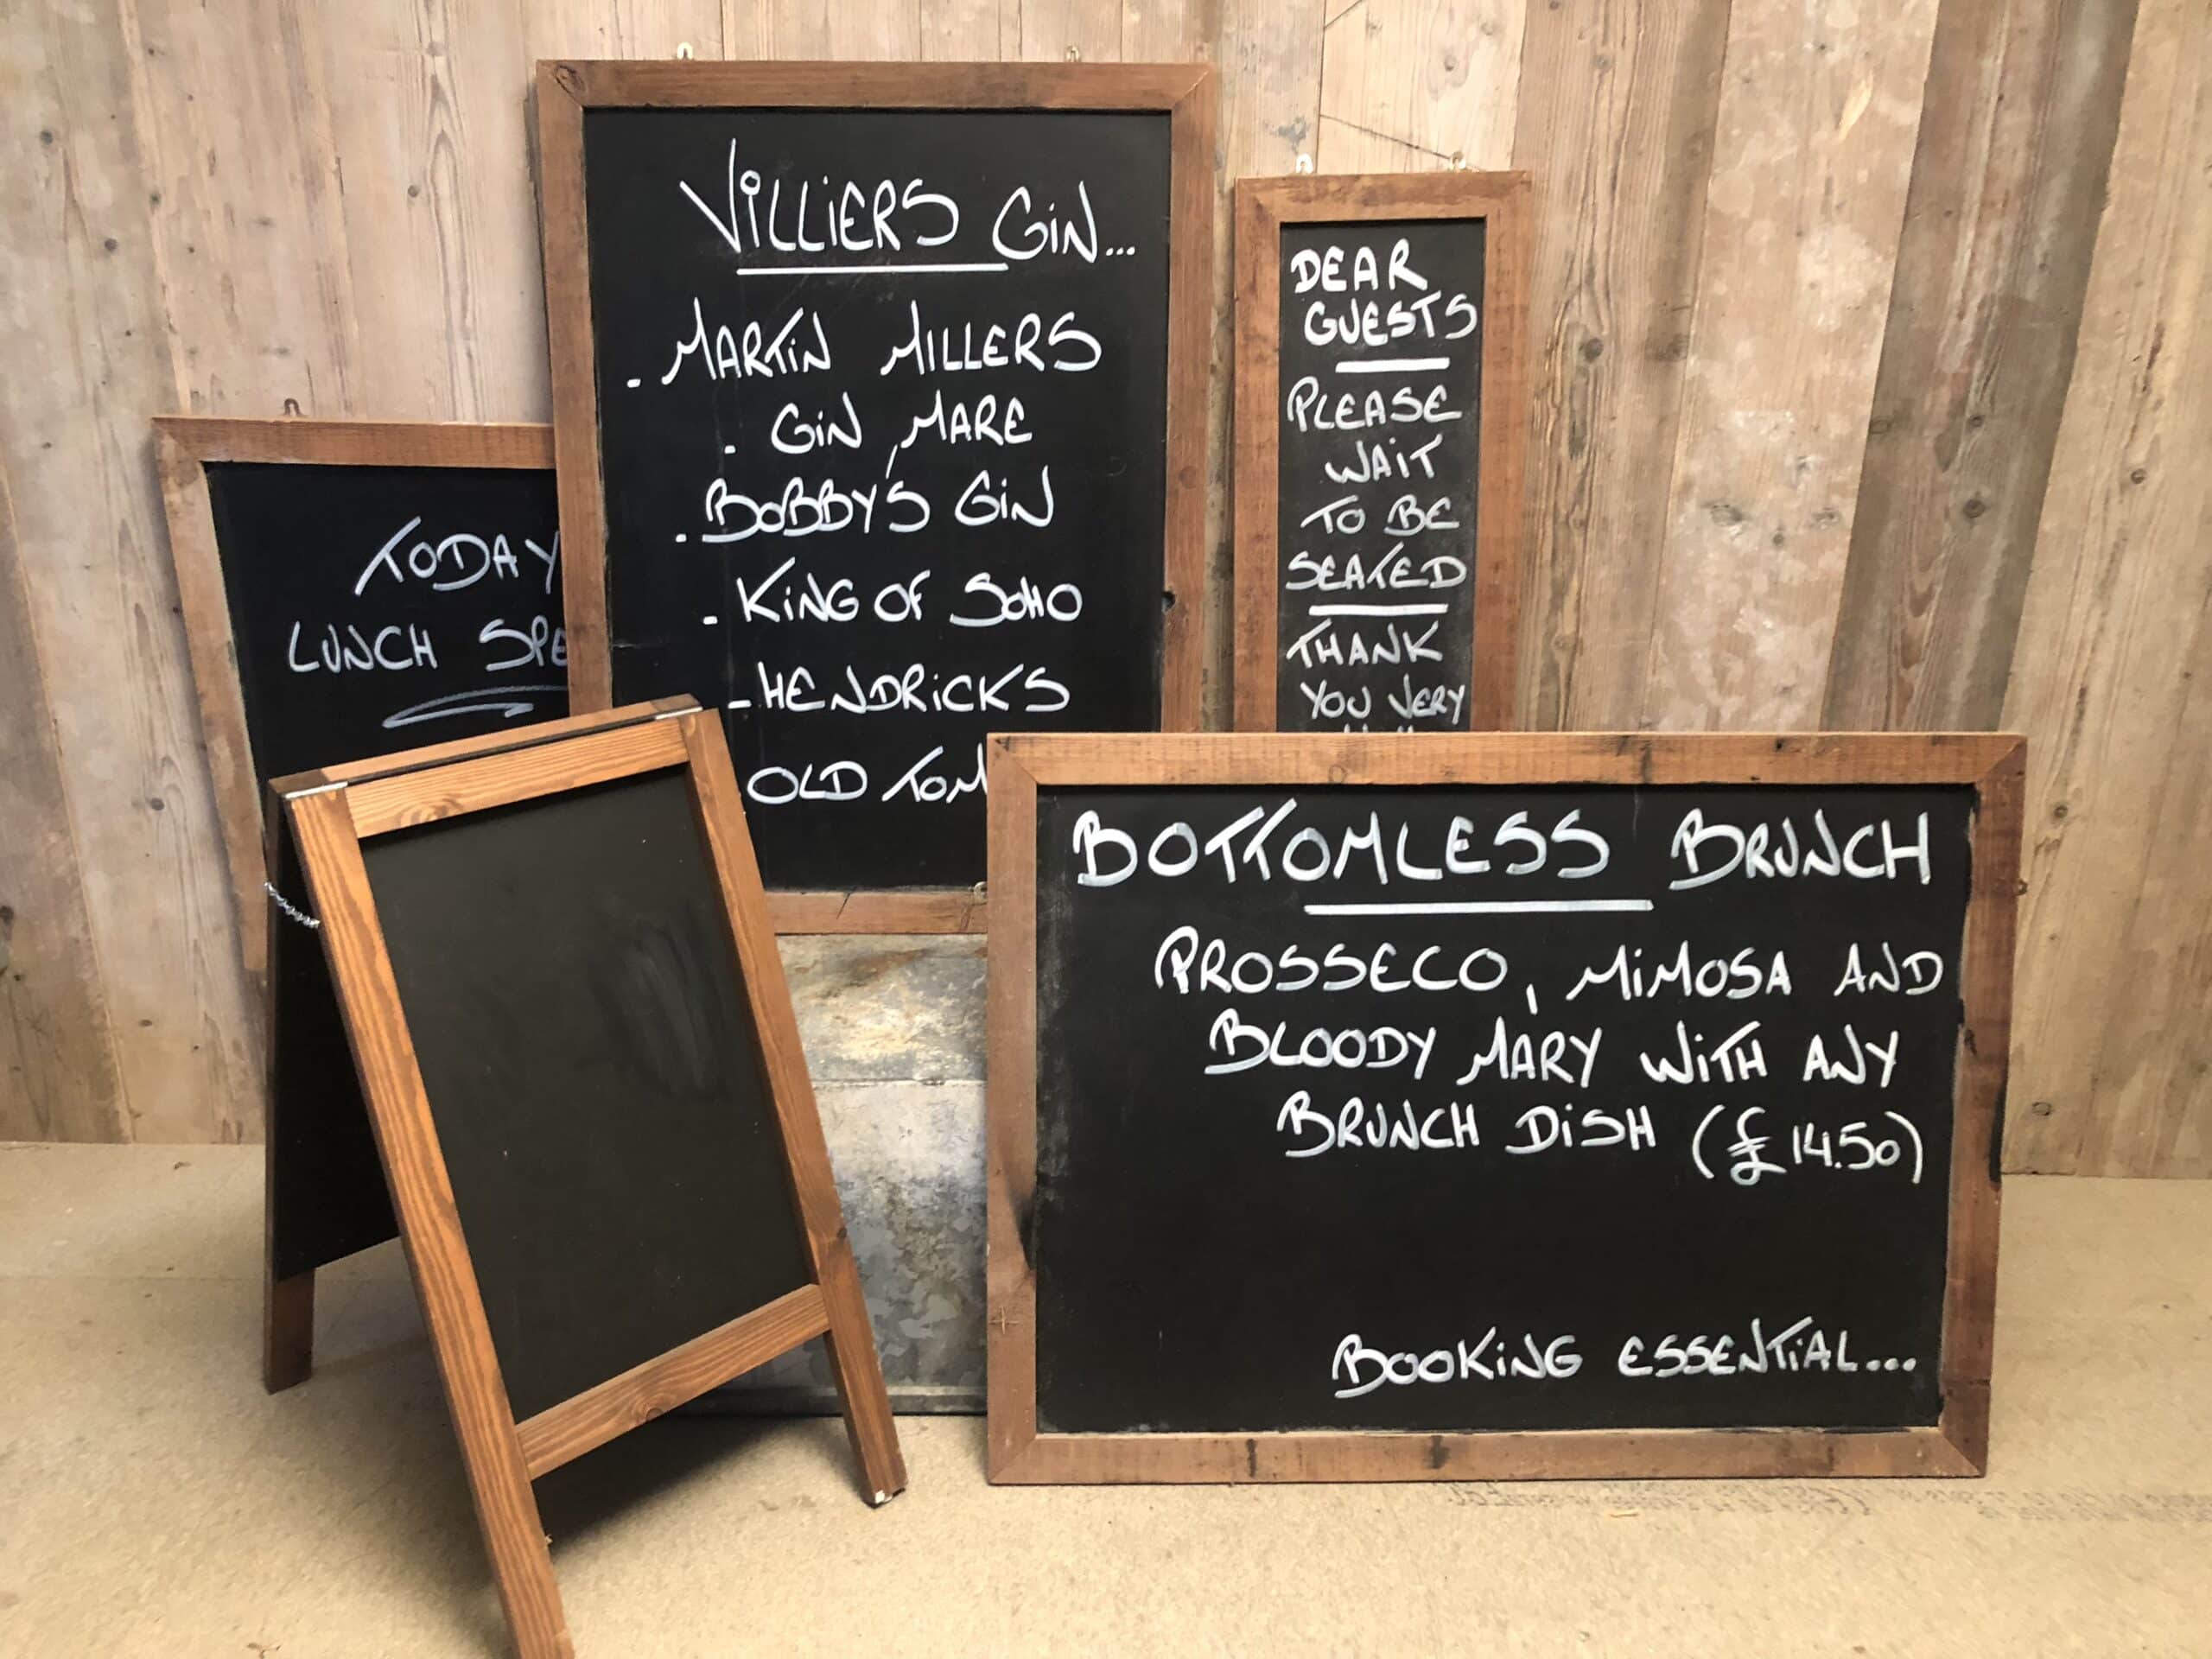 VILLIERS GIN...
. MARTIN MILLERS
. GIN MARE
. BOBBY'S GIN
- KING OF SOHO
- HENDRICKS
OLD TOM
TODAY
LUNCH SPE
DEAR
GUESTS
PLEASE
WAIT
TO BE
SEATED
THANK
YOU VERY
BOTTOMLESS BRUNCH
PROSSECO, MIMOSA AND
BLOODY MARY WITH ANY
BRUNCH DISH (£14.50)
BOOKING ESSENTIAL...